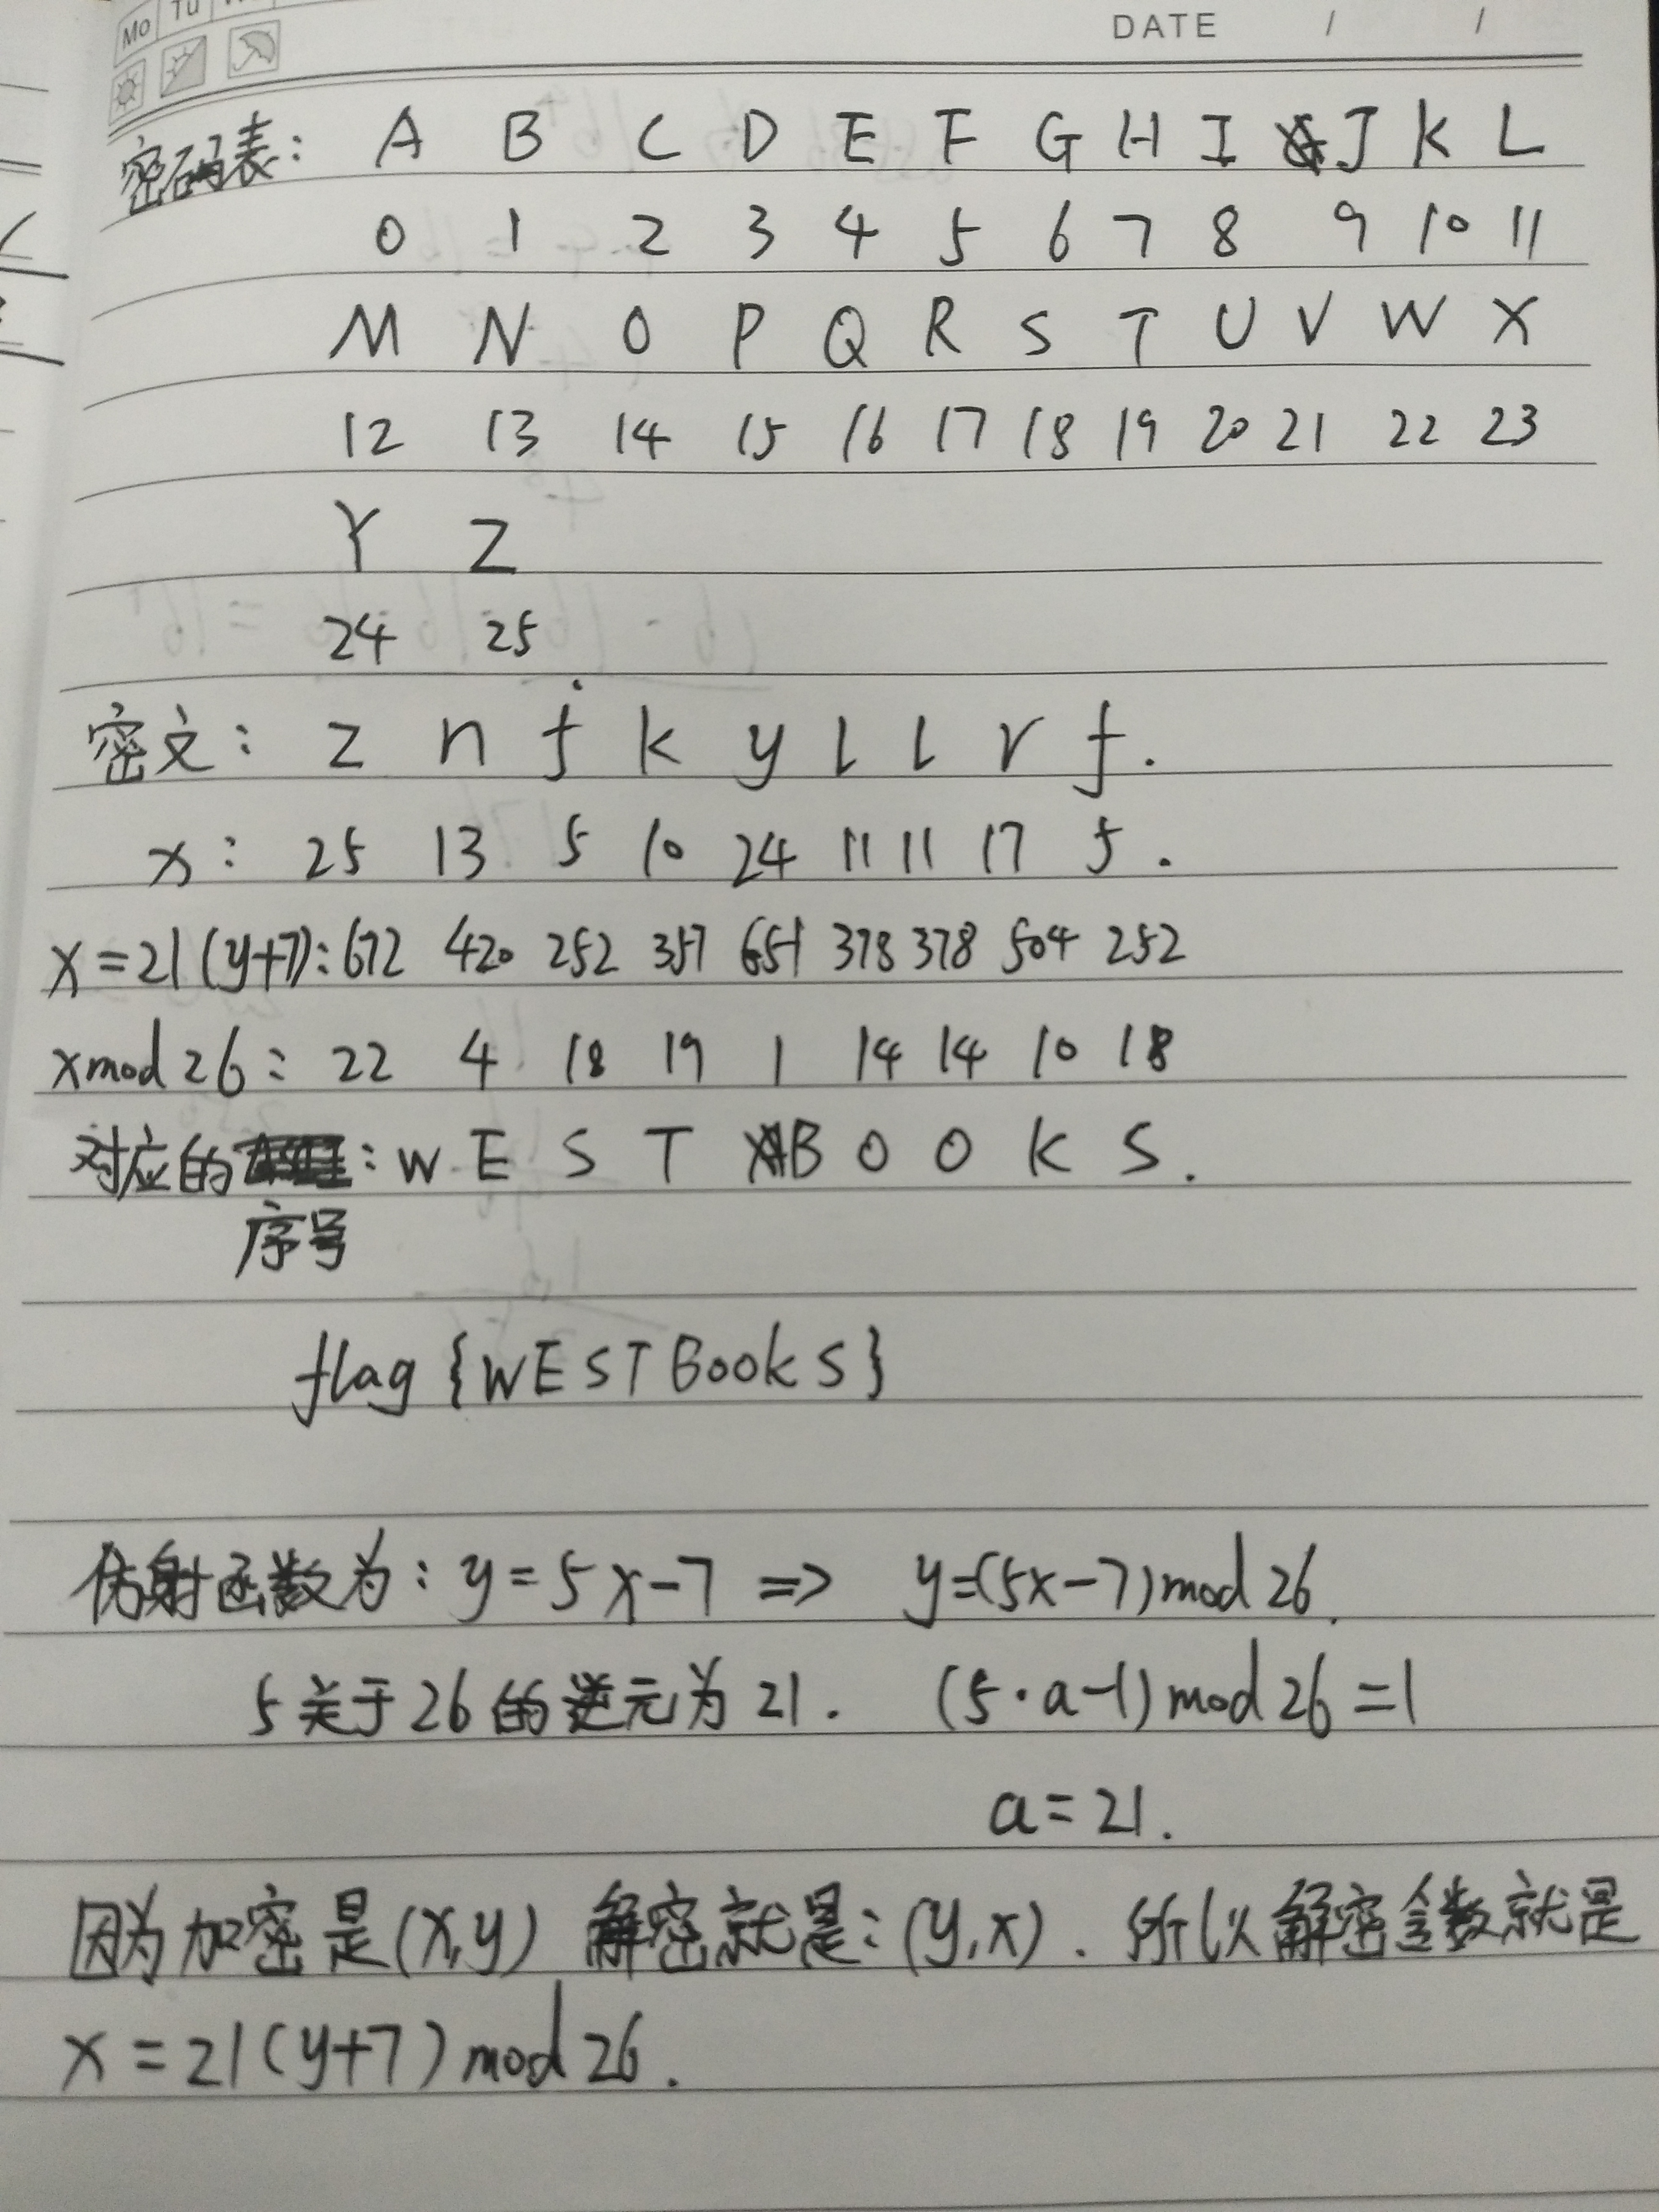 Mo Tu
DATE / /
密码表: A B C D E F G H I J K L
0 1 2 3 4 5 6 7 8 9 10 11
M N O P Q R S T U V W X
12 13 14 15 16 17 18 19 20 21 22 23
Y Z
24 25
密文: z n f k y l l r f.
x: 25 13 5 10 24 11 11 17 5.
x=21(y+7): 672 420 252 357 651 378 378 504 252
xmod26: 22 4 18 19 1 14 14 10 18
对应的: W E S T B O O K S.
序号
flag{WESTBookS}
仿射函数为: y=5x-7 => y=(5x-7)mod26.
5关于26的逆元为21. (5·a-1)mod26=1
a=21.
因为加密是(x,y) 解密就是:(y,x). 所以解密函数就是
x=21(y+7)mod26.